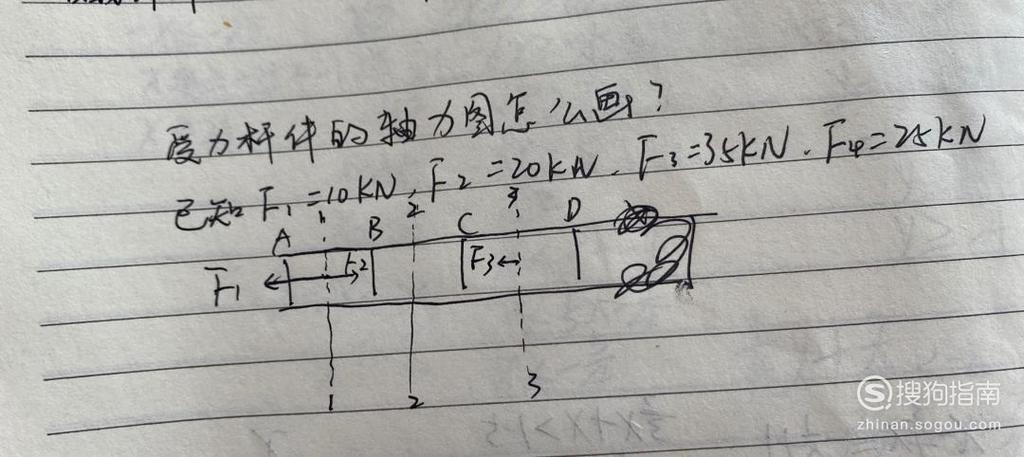 受力杆件的轴力图怎么画?
已知 F1=10KN, F2=20KN. F3=35KN. F4=25KN
1 2 3
A B C D
F1 F2 F3
1 2 3
搜狗指南
zhinan.sogou.com